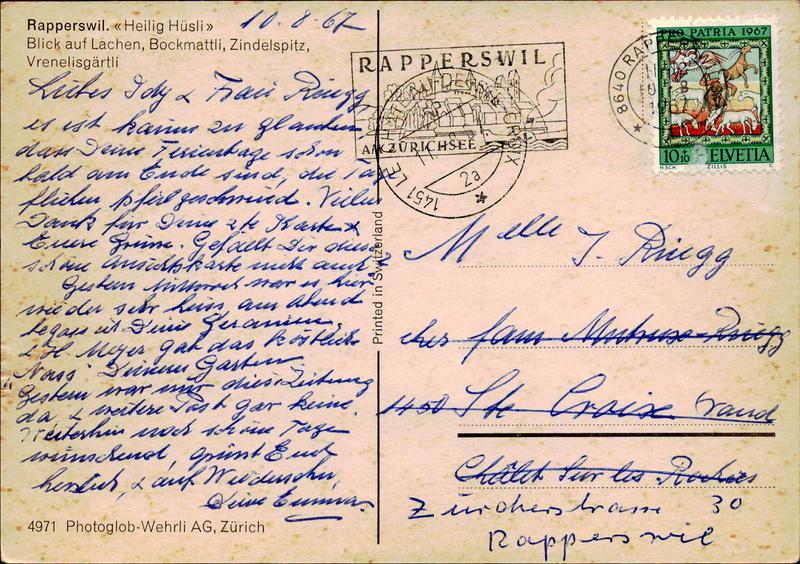 Rapperswil. «Heilig Hüsli» 10.8.67
Blick auf Lachen, Bockmattli, Zindelspitz,
Vrenelisgärtli
Liebes Idy & Frau Rüegg
es ist kaum zu glauben
dass Deine Ferientage schon
bald am Ende sind, die Tage
fliehen pfeilgeschwind. Vielen
Dank für Deine 2te Karte &
Euere Grüsse. Gefällt Dir diese
schöne Ansichtskarte nicht auch?
Gestern Mittwoch war es hier
wieder sehr heiss, am Abend
begoss ich Deine Geranien
& H. Meyer gab das köstliche
"Nass" Deinem Garten
Gestern war nur diese Zeitung
da & weitere Post gar keine.
Weiterhin noch schöne Tage
wünschend, grüsst Euch
herzlich, & auf Wiedersehn,
Deine Emma
4971 Photoglob-Wehrli AG, Zürich
Printed in Switzerland
RAPPERSWIL
AM ZÜRICHSEE
1451
2a
8640 RAPPERSWIL
PRO PATRIA 1967
10+10 HELVETIA
H.SCH. ZILLIS C
Melle I. Rüegg
chez fam Mutrux-Rüegg
1450 Ste Croix Vaud
Châlet Sur les Roches
Zürcherstrasse 30
Rapperswil